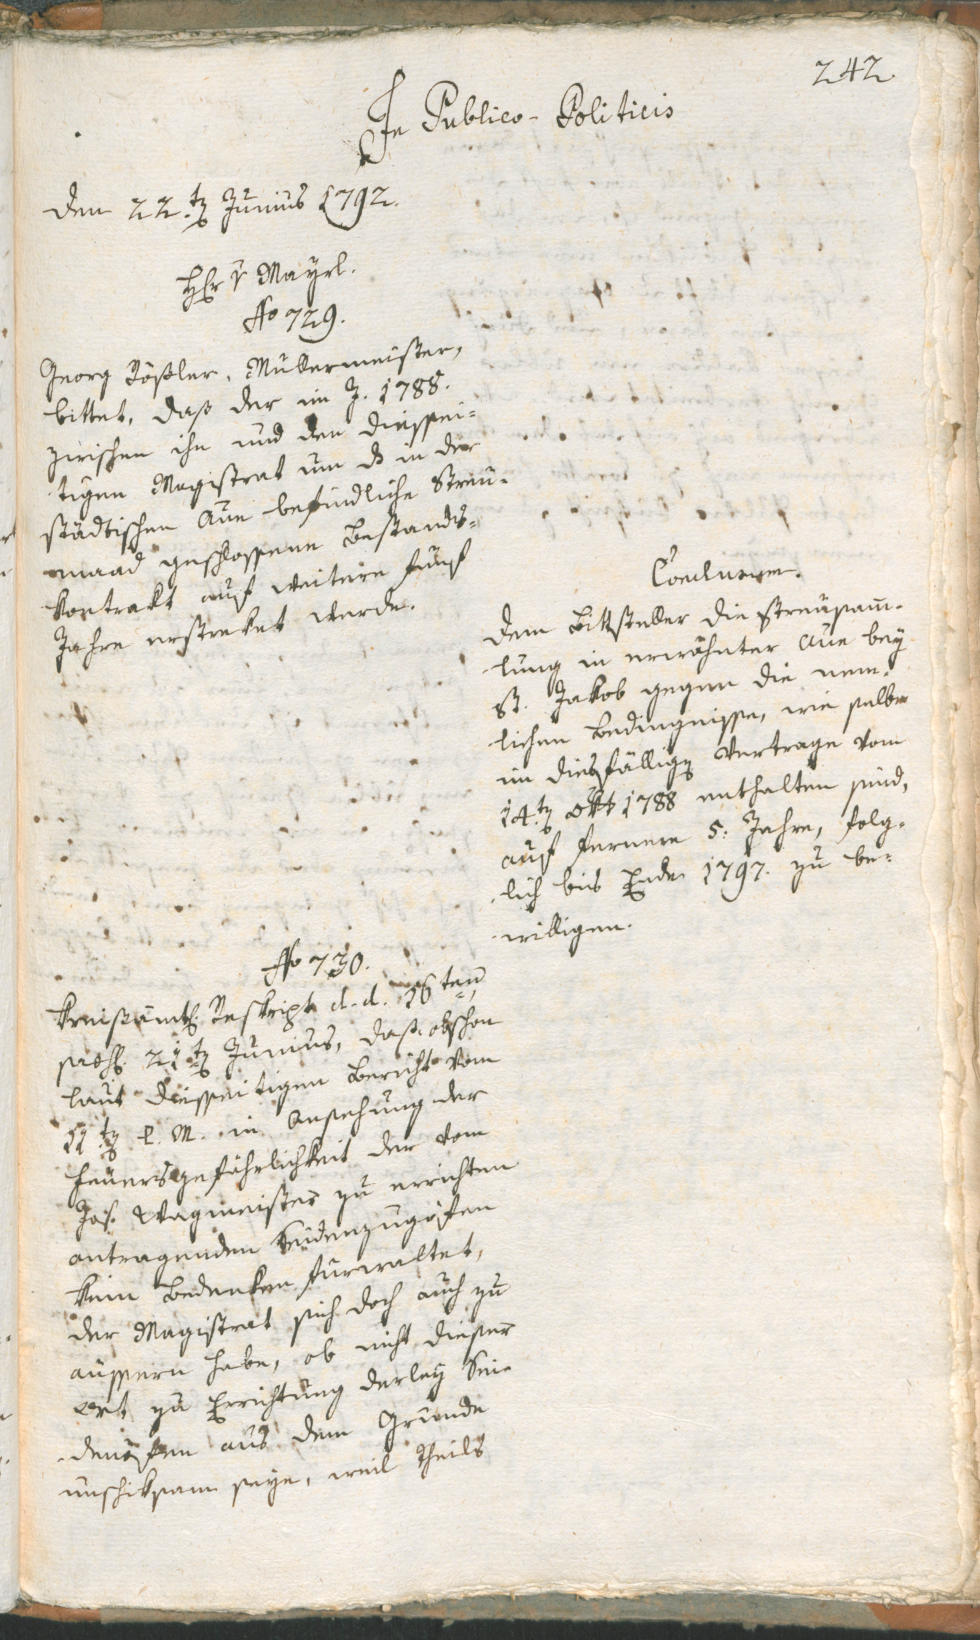 242.
In Publico-Politicis
den 22.t Junius 1792.
Hr v Mayrl.
No 729.
Georg Rößler, Müllermeister,
bittet, daß der im J. 1788.
zwischen ihn und den diessei-
tigen Magistrat um d in der
städtischen Aue befindliche Streu-
maad geschlossene Bestands-
kontrakt auf weitere fünf
Jahre erstreket werde.
Conclusum.
dem Bittsteller die Streusam-
lung in erwähnter Aue bey
St. Jakob gegen die nem-
lichen Bedingnisse, wie selbe
im diesfällig Vertrage vom
14.t Okt 1788 enthalten sind,
auf fernere 5. Jahre, folg-
lich bis Ende 1797. zu be-
willigen.
No 730.
Kreisämtl. Reskript d. d. 16ten
21t Junius, daß obschon
laut diesseitigen Bericht vom
11t l. M. in Ansehung der
Feuersgefährlichkeit der vom
Jos. Wagmeister zu errichten
antragenden Seidenzugöfen
kein Bedenken fürwaltet,
der Magistrat sich doch auch zu
äussern habe, ob nicht dieser
Ort zu Errichtung derley Sei-
denöfen aus dem Grunde
unschiksam seye, weil theils